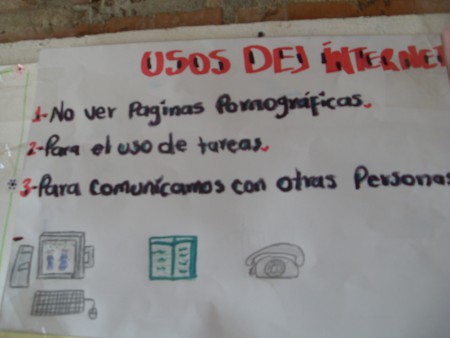 USOS DEL INTERNET
1-No ver Paginas Pornográficas.
2-Para el uso de tareas.
*3-Para comunicarnos con otras Personas